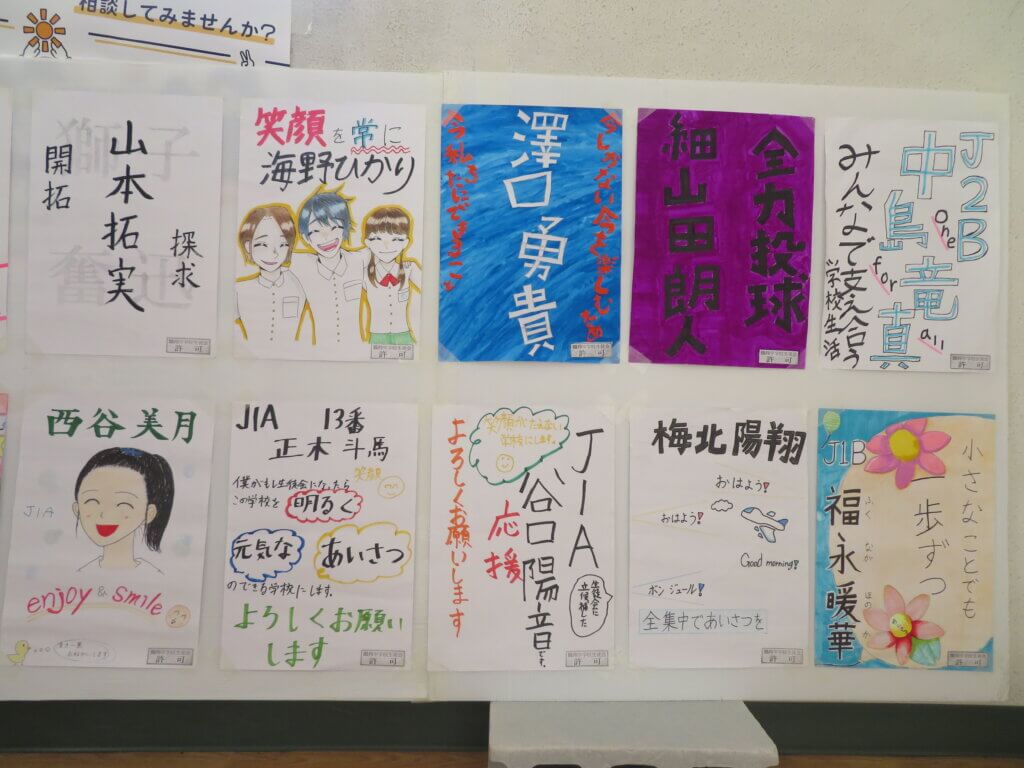 相談してみませんか?
獅子
奮迅
山本拓実
開拓
探求
許可
笑顔を常に
海野ひかり
許可
今しかない今を楽しむため
澤口勇貴
今私たちにできること
許可
全力投球
細山田朗人
許可
J2B
中島竜真
one for all
みんなで支え合う
学校生活
許可
西谷美月
J1A
enjoy & smile
許可
J1A 13番
正木斗馬
笑顔
僕がもし生徒会になったら
この学校を明るく
元気な
あいさつ
のできる学校にします。
よろしくお願い
します
許可
笑顔がたえない
学校にします。
J1A
谷口陽音です。
生徒会に
立候補した
応援
よろしくお願いします
許可
梅北陽翔
おはよう!
おはよう!
Good morning!
ボンジュール!
全集中であいさつを
許可
小さなことでも
一歩ずつ
J1B
福永暖華
ふく なが ほの か
許可